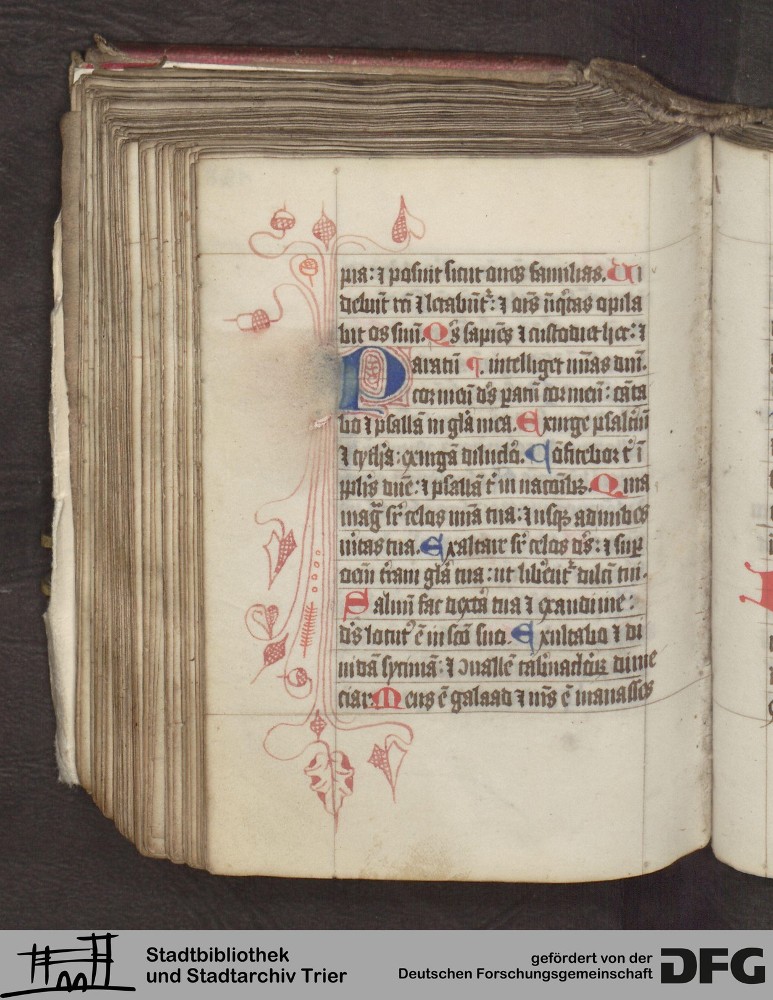 pia: ⁊ posuit sicut oues familias. Ui
debūt rc̄i ⁊ letabūt᷑: ⁊ om̄s īiq̇tas opila
bit os suū. Q's sapiēs ⁊ custodiet hec: ⁊
Paratū ¶. intelliget mīas dnī.
cor meū d's paratū cor meū: cāta
bo ⁊ psallā in glā mea. Exurge psaltiū
⁊ cythā: exurgā diluclo. Cōfitebor t' ī
pplīs dn̄e: ⁊ psallā t' in nacōib;. Quia
mag̅ sr̄ celos mīa tua: ⁊ usq; ad nubes
ūitas tua. Exaltare sr̄ celos d's: ⁊ sup
oēm t'ram glā tua: ut lib'ent᷑ dilcī tui.
Saluū fac dextā tua ⁊ exaudi me:
d's locut' ē in scō suo. Exultabo ⁊ di
uidā sycimā: ⁊ ↄuallē tab'naclor̄ dime
ciar. Meus ē galaad ⁊ m̄s ē manasses
Stadtbibliothek
und Stadtarchiv Trier
gefördert von der
Deutschen Forschungsgemeinschaft
DFG